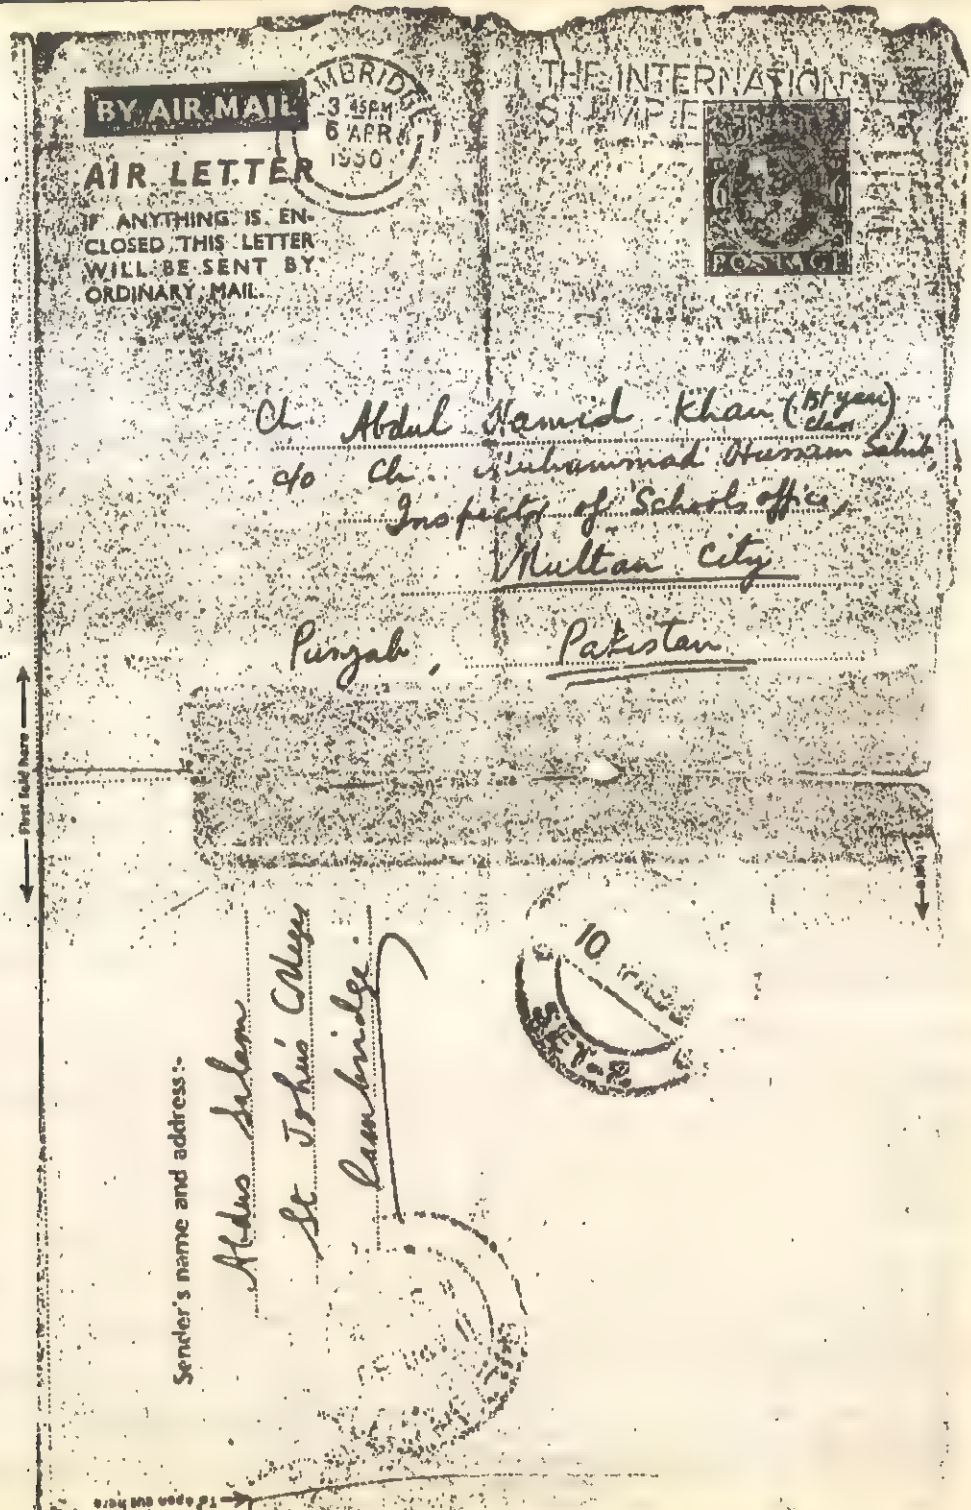 BY AIR MAIL
AIR LETTER
IF ANYTHING IS EN-
CLOSED THIS LETTER
WILL BE SENT BY
ORDINARY MAIL.
AMBRIDGE
3 45PM
6 APR
1950
THE INTERNATION
STAMP E
POSTAGE
Ch Abdul Hamid Khan (1st year
class)
c/o Ch. Muhammad Hussain Sahib,
Inspector of Schools office,
Multan City
Punjab, Pakistan
First fold here
Sender's name and address:-
Abdus Salam
St John's College
Cambridge.
10
SET-2
To open cut here